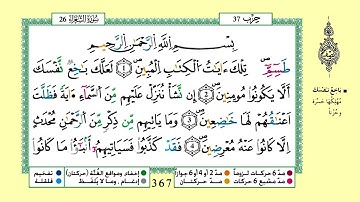 26 سُورَةُ الشُّعَرَاءِ
حِزْب 37
بِسْمِ اللَّهِ الرَّحْمَٰنِ الرَّحِيمِ
طَسِٓمِّٓ 1 تِلْكَ ءَايَٰتُ الْكِتَٰبِ الْمُبِينِ 2 لَعَلَّكَ بَٰخِعٞ نَّفْسَكَ
أَلَّا يَكُونُوا مُومِنِينَ 3 إِن نَّشَأْ نُنَزِّلْ عَلَيْهِم مِّنَ السَّمَآءِ ايَةٗ فَظَلَّتَ
اَعْنَٰقُهُمْ لَهَا خَٰضِعِينَ 4 وَمَا يَاتِيهِم مِّن ذِكْرٖ مِّنَ الرَّحْمَٰنِ مُحْدَثٍ
اِلَّا كَانُوا عَنْهُ مُعْرِضِينَ 5 فَقَدْ كَذَّبُوا فَسَيَاتِيهِمُ أَنۢبَٰٓؤُا مَا كَانُوا
بَٰخِعٞ نَّفْسَكَ
مدّ 6 حركات لزوماً
مدّ 2 أو 4 أو 6 جوازاً
إخفاء ومواقع الغُنَّة (حركتان)
تفخيم
مدّ مشبع 6 حركات
مدّ حركتان
367
إدغام ، وما لا يُلفظ
قلقلة